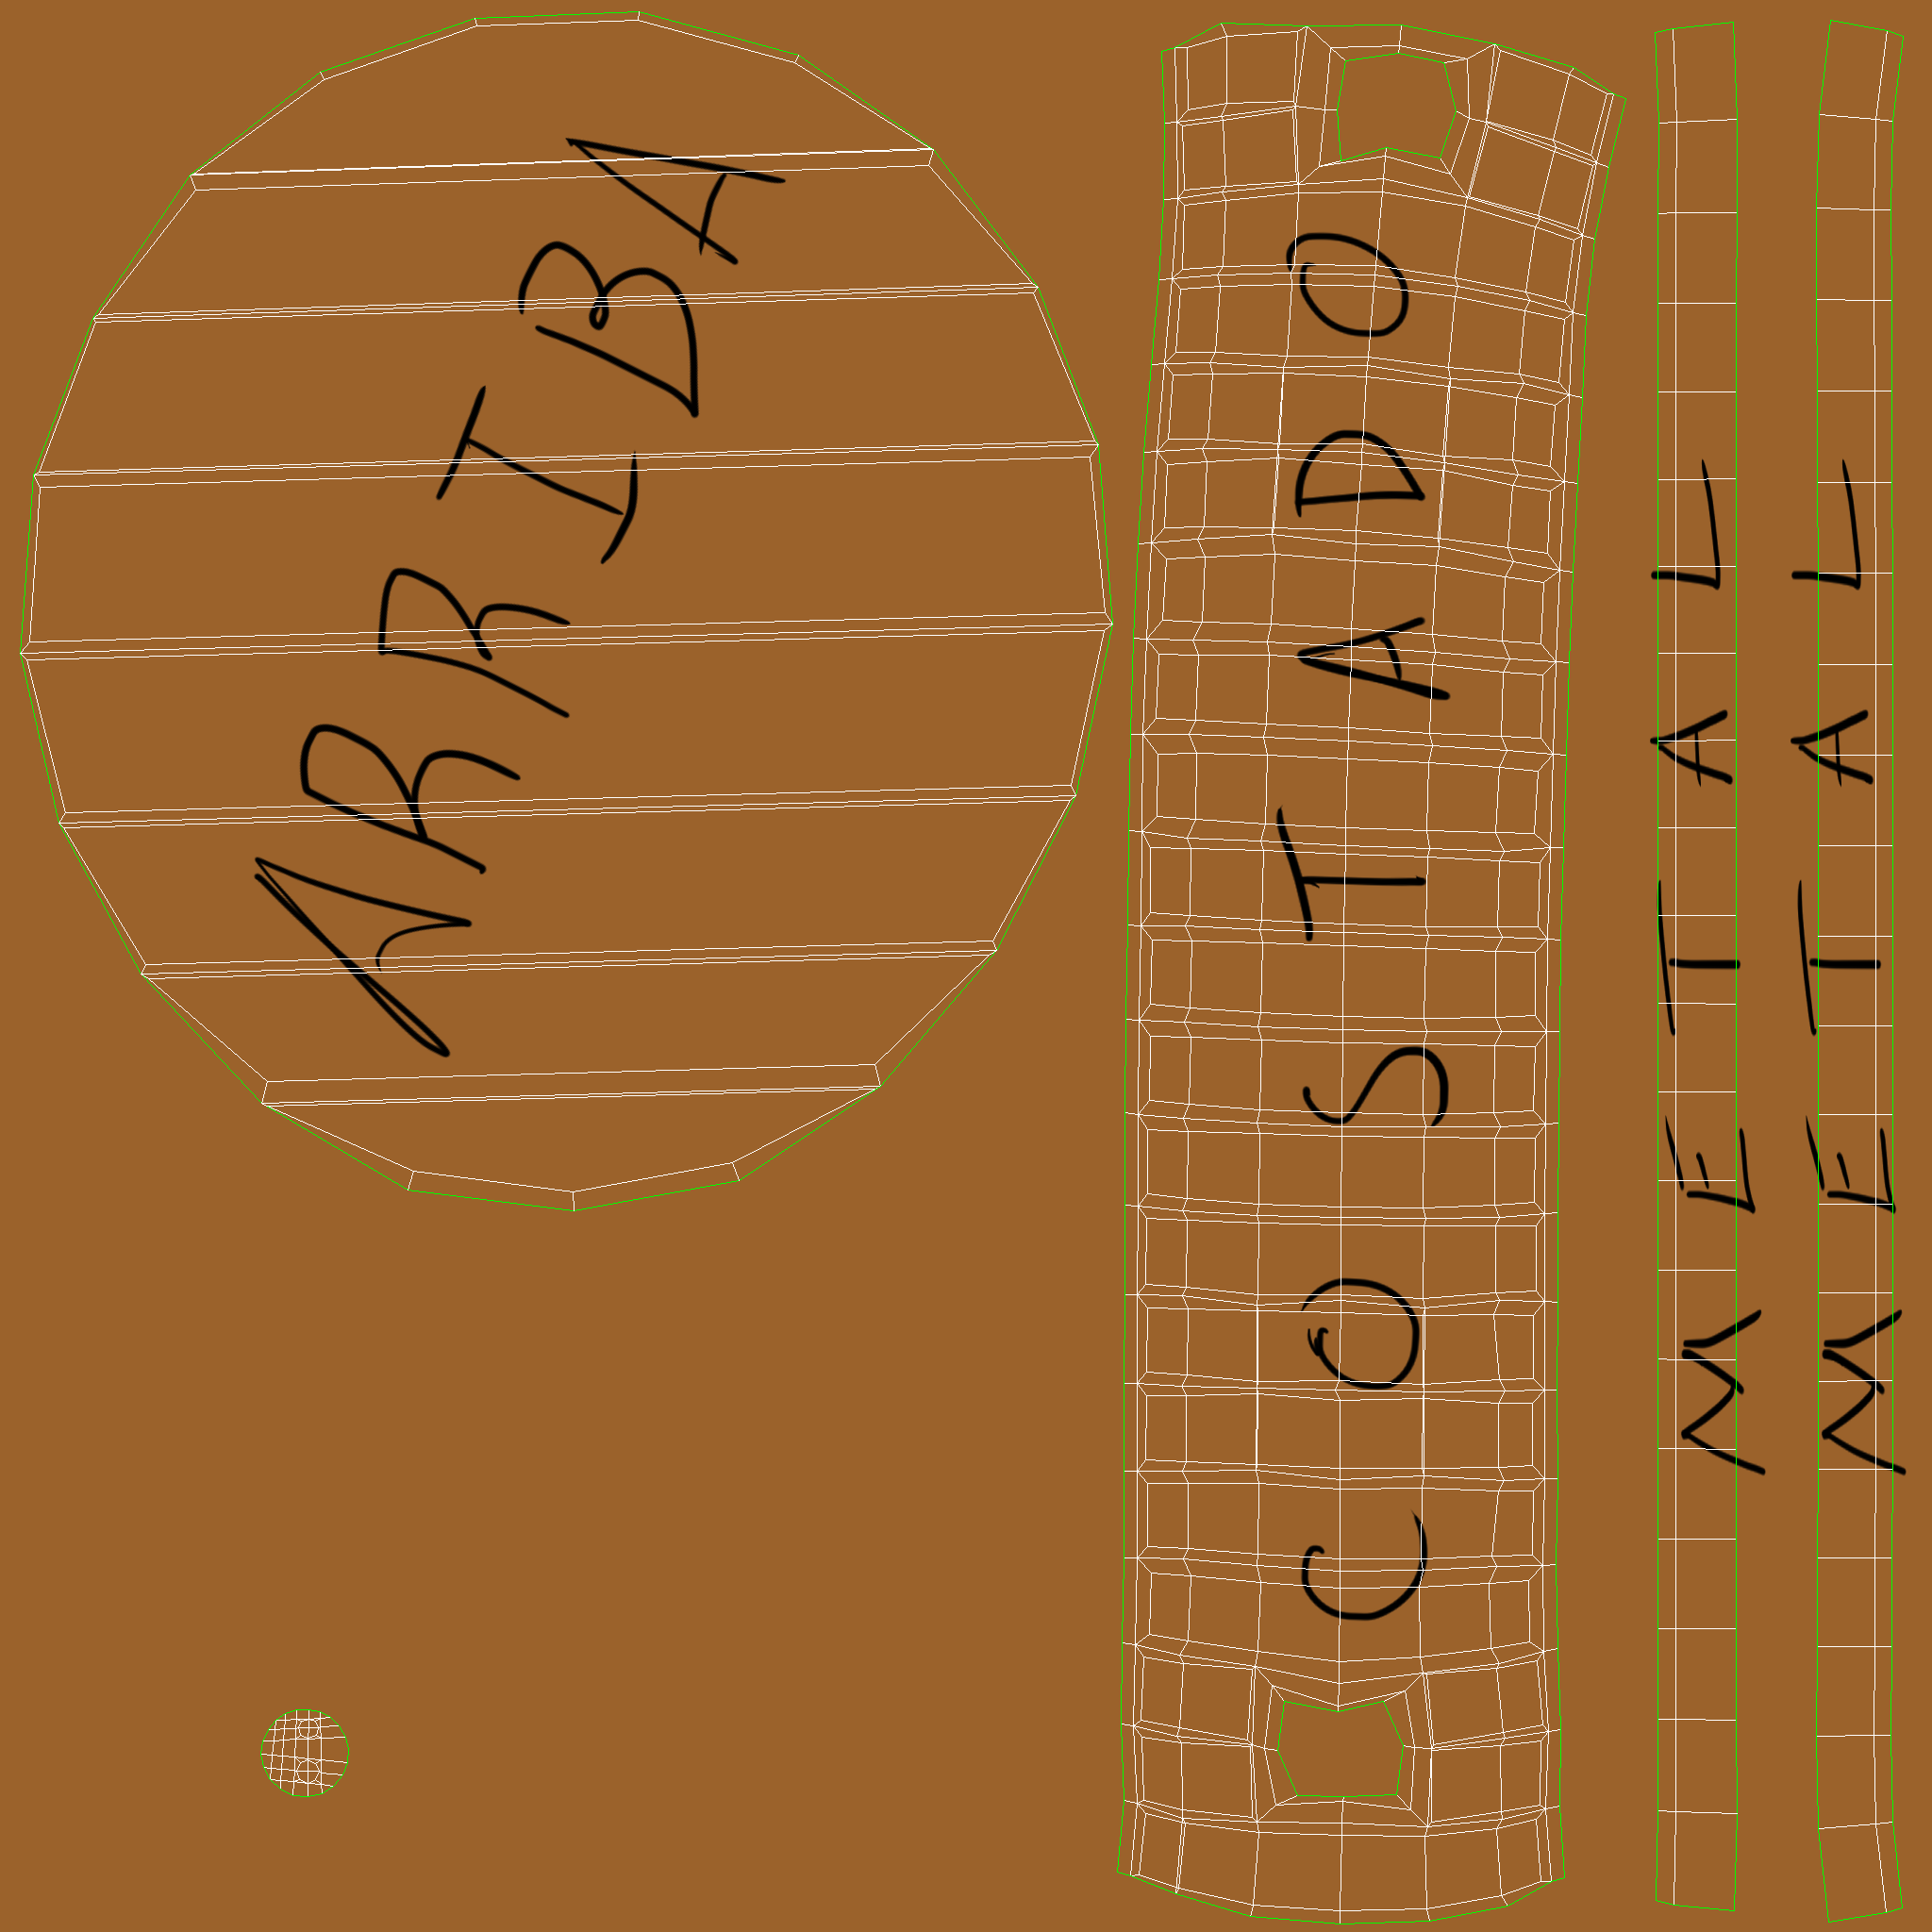 ARRIBA
COSTADO
METAL
METAL